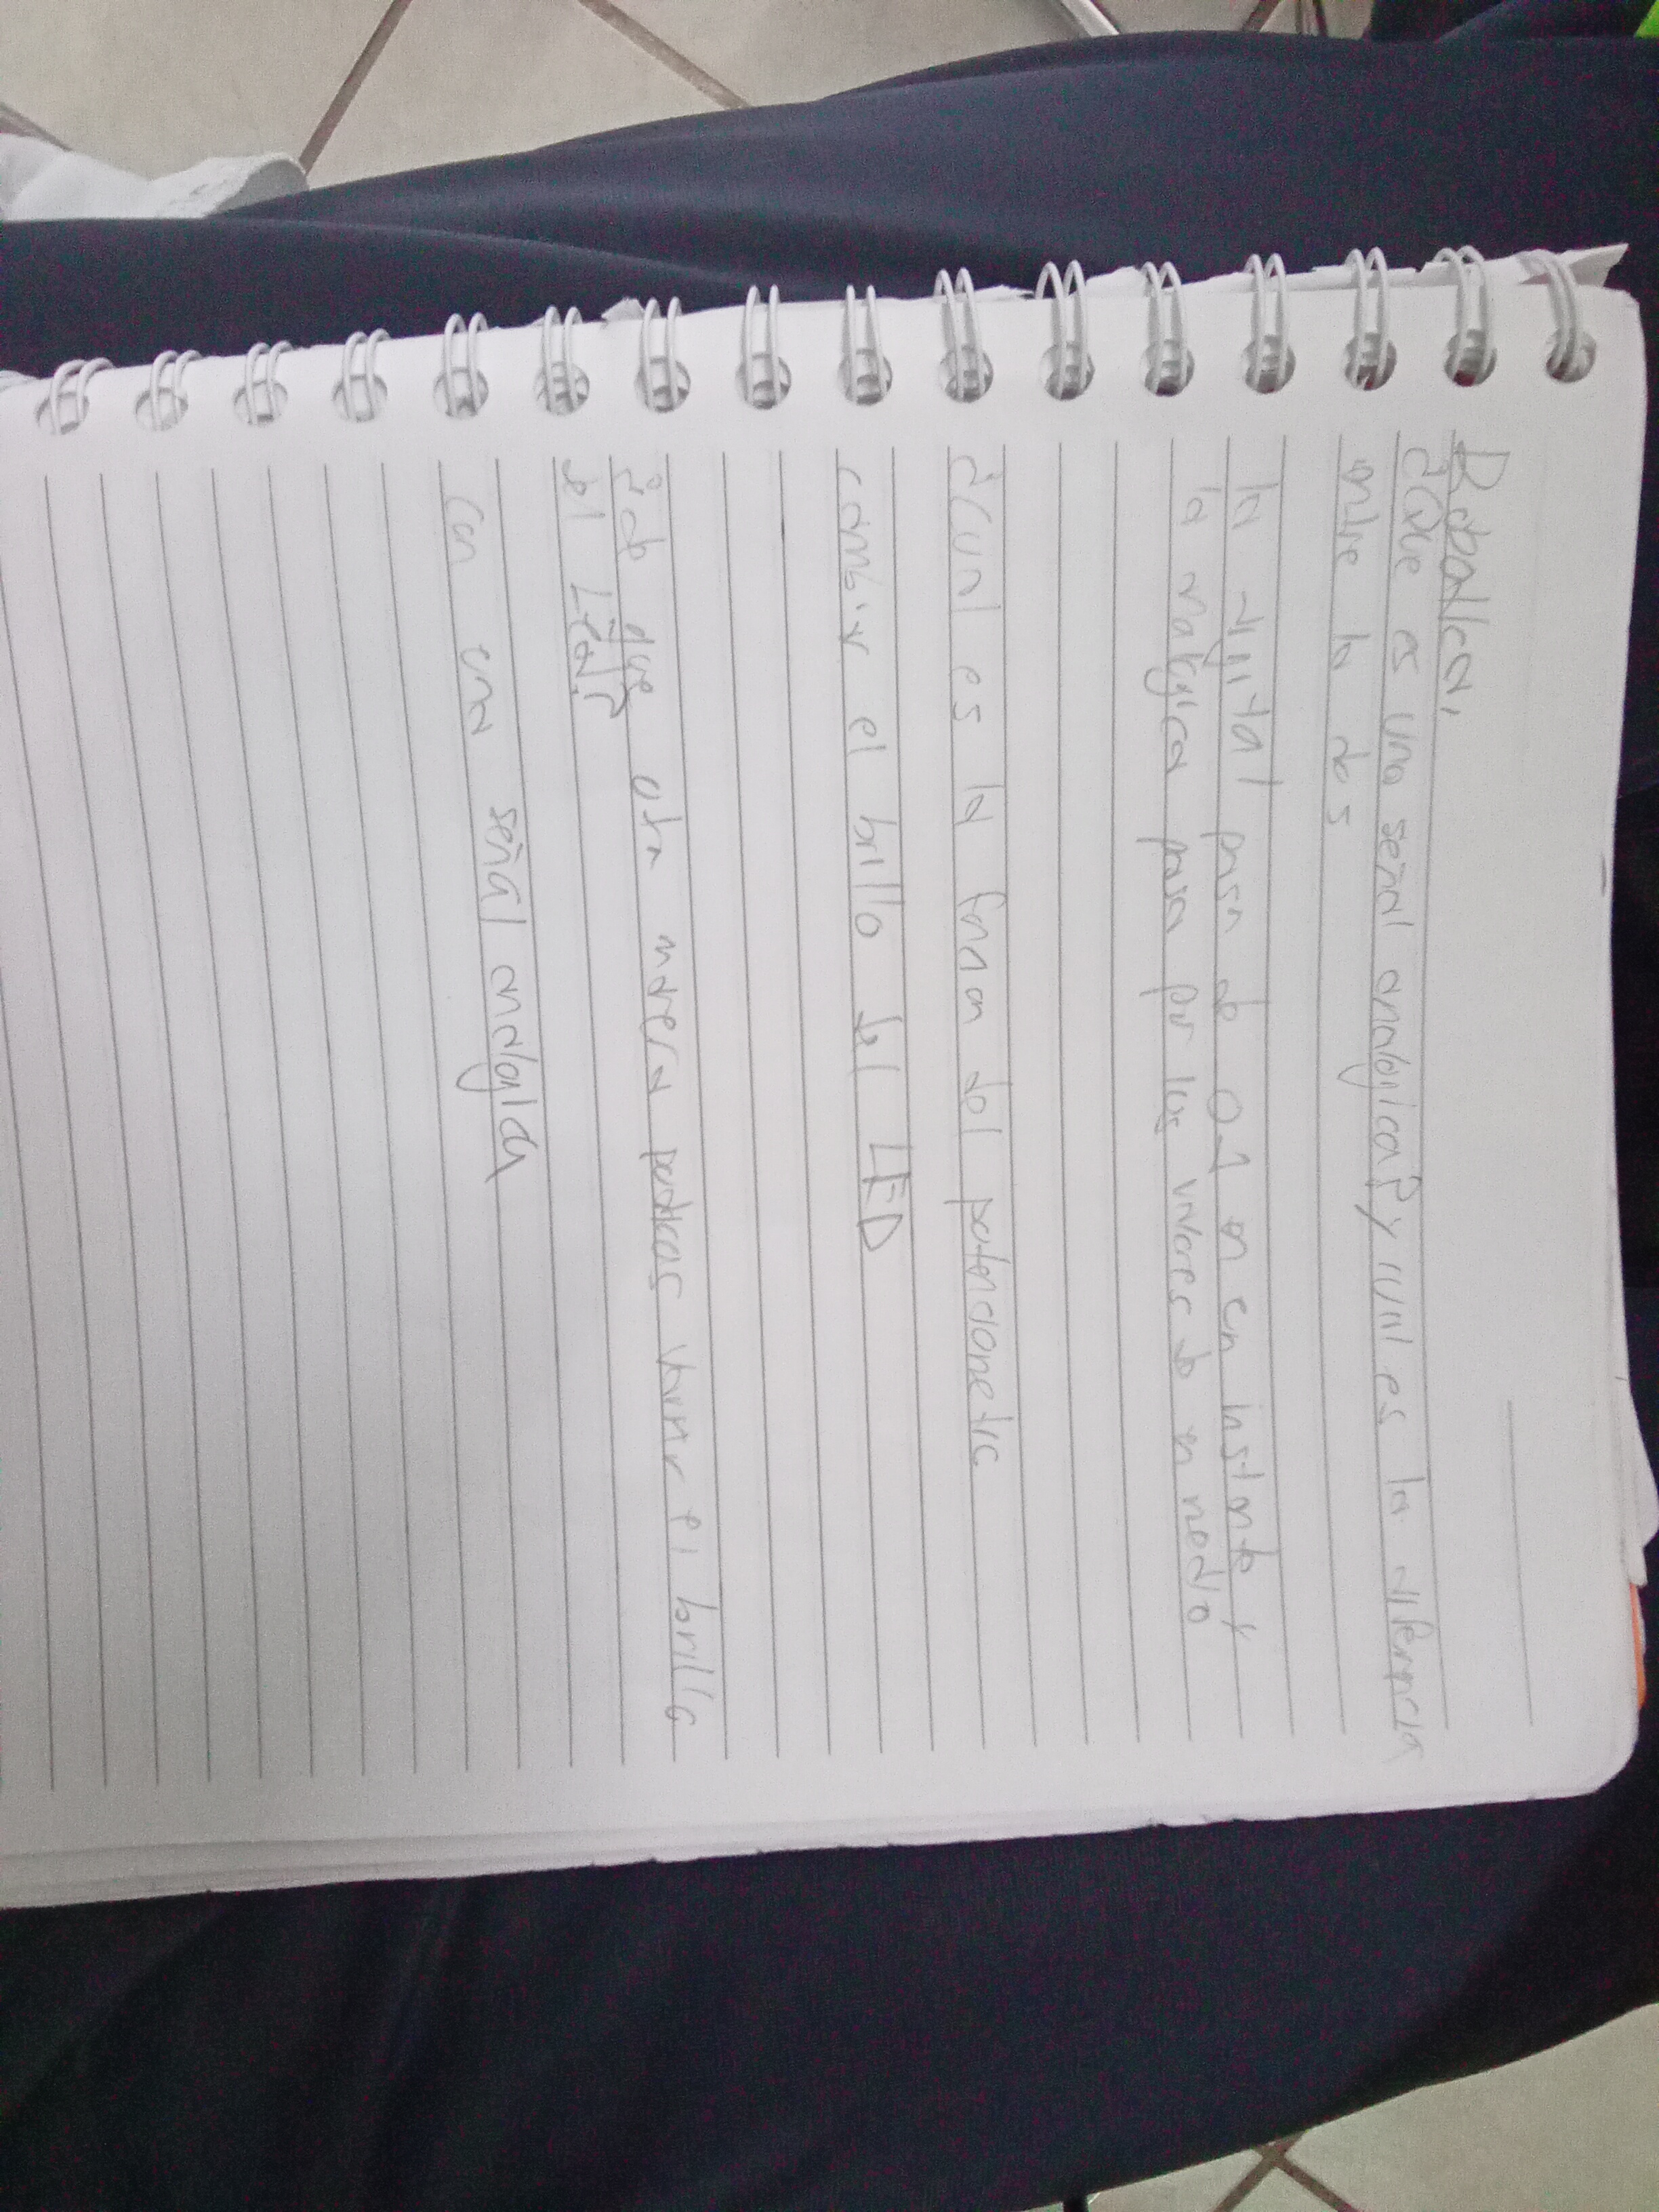 Robotica,
¿Que es una señal analogica? y cual es la diferencia
entre la dos
la digital pasa de 0 1 en en instante y
la analogica pasa por los valores de en medio
¿Cual es la del potenciometro
cambiar el brillo del LED
¿de que otra manera podrias variar el brillo
el LED?
Con una señal analogica